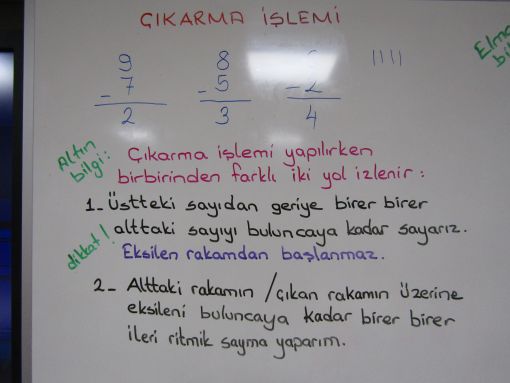 ÇIKARMA İŞLEMİ
9 8
7 5 2
2 3 4
Altın bilgi:
Çıkarma işlemi yapılırken
birbirinden farklı iki yol izlenir:
1- Üstteki sayıdan geriye birer birer
alttaki sayıyı buluncaya kadar sayarız.
dikkat!
Eksilen rakamdan başlanmaz.
2- Alttaki rakamın / çıkan rakamın üzerine
eksileni buluncaya kadar birer birer
ileri ritmik sayma yaparım.